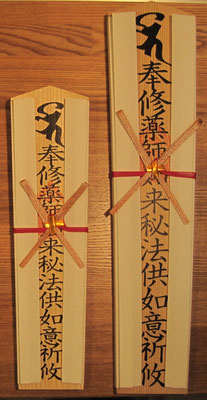 奉修薬師如来秘法供如意祈攸
奉修薬師如来秘法供如意祈攸